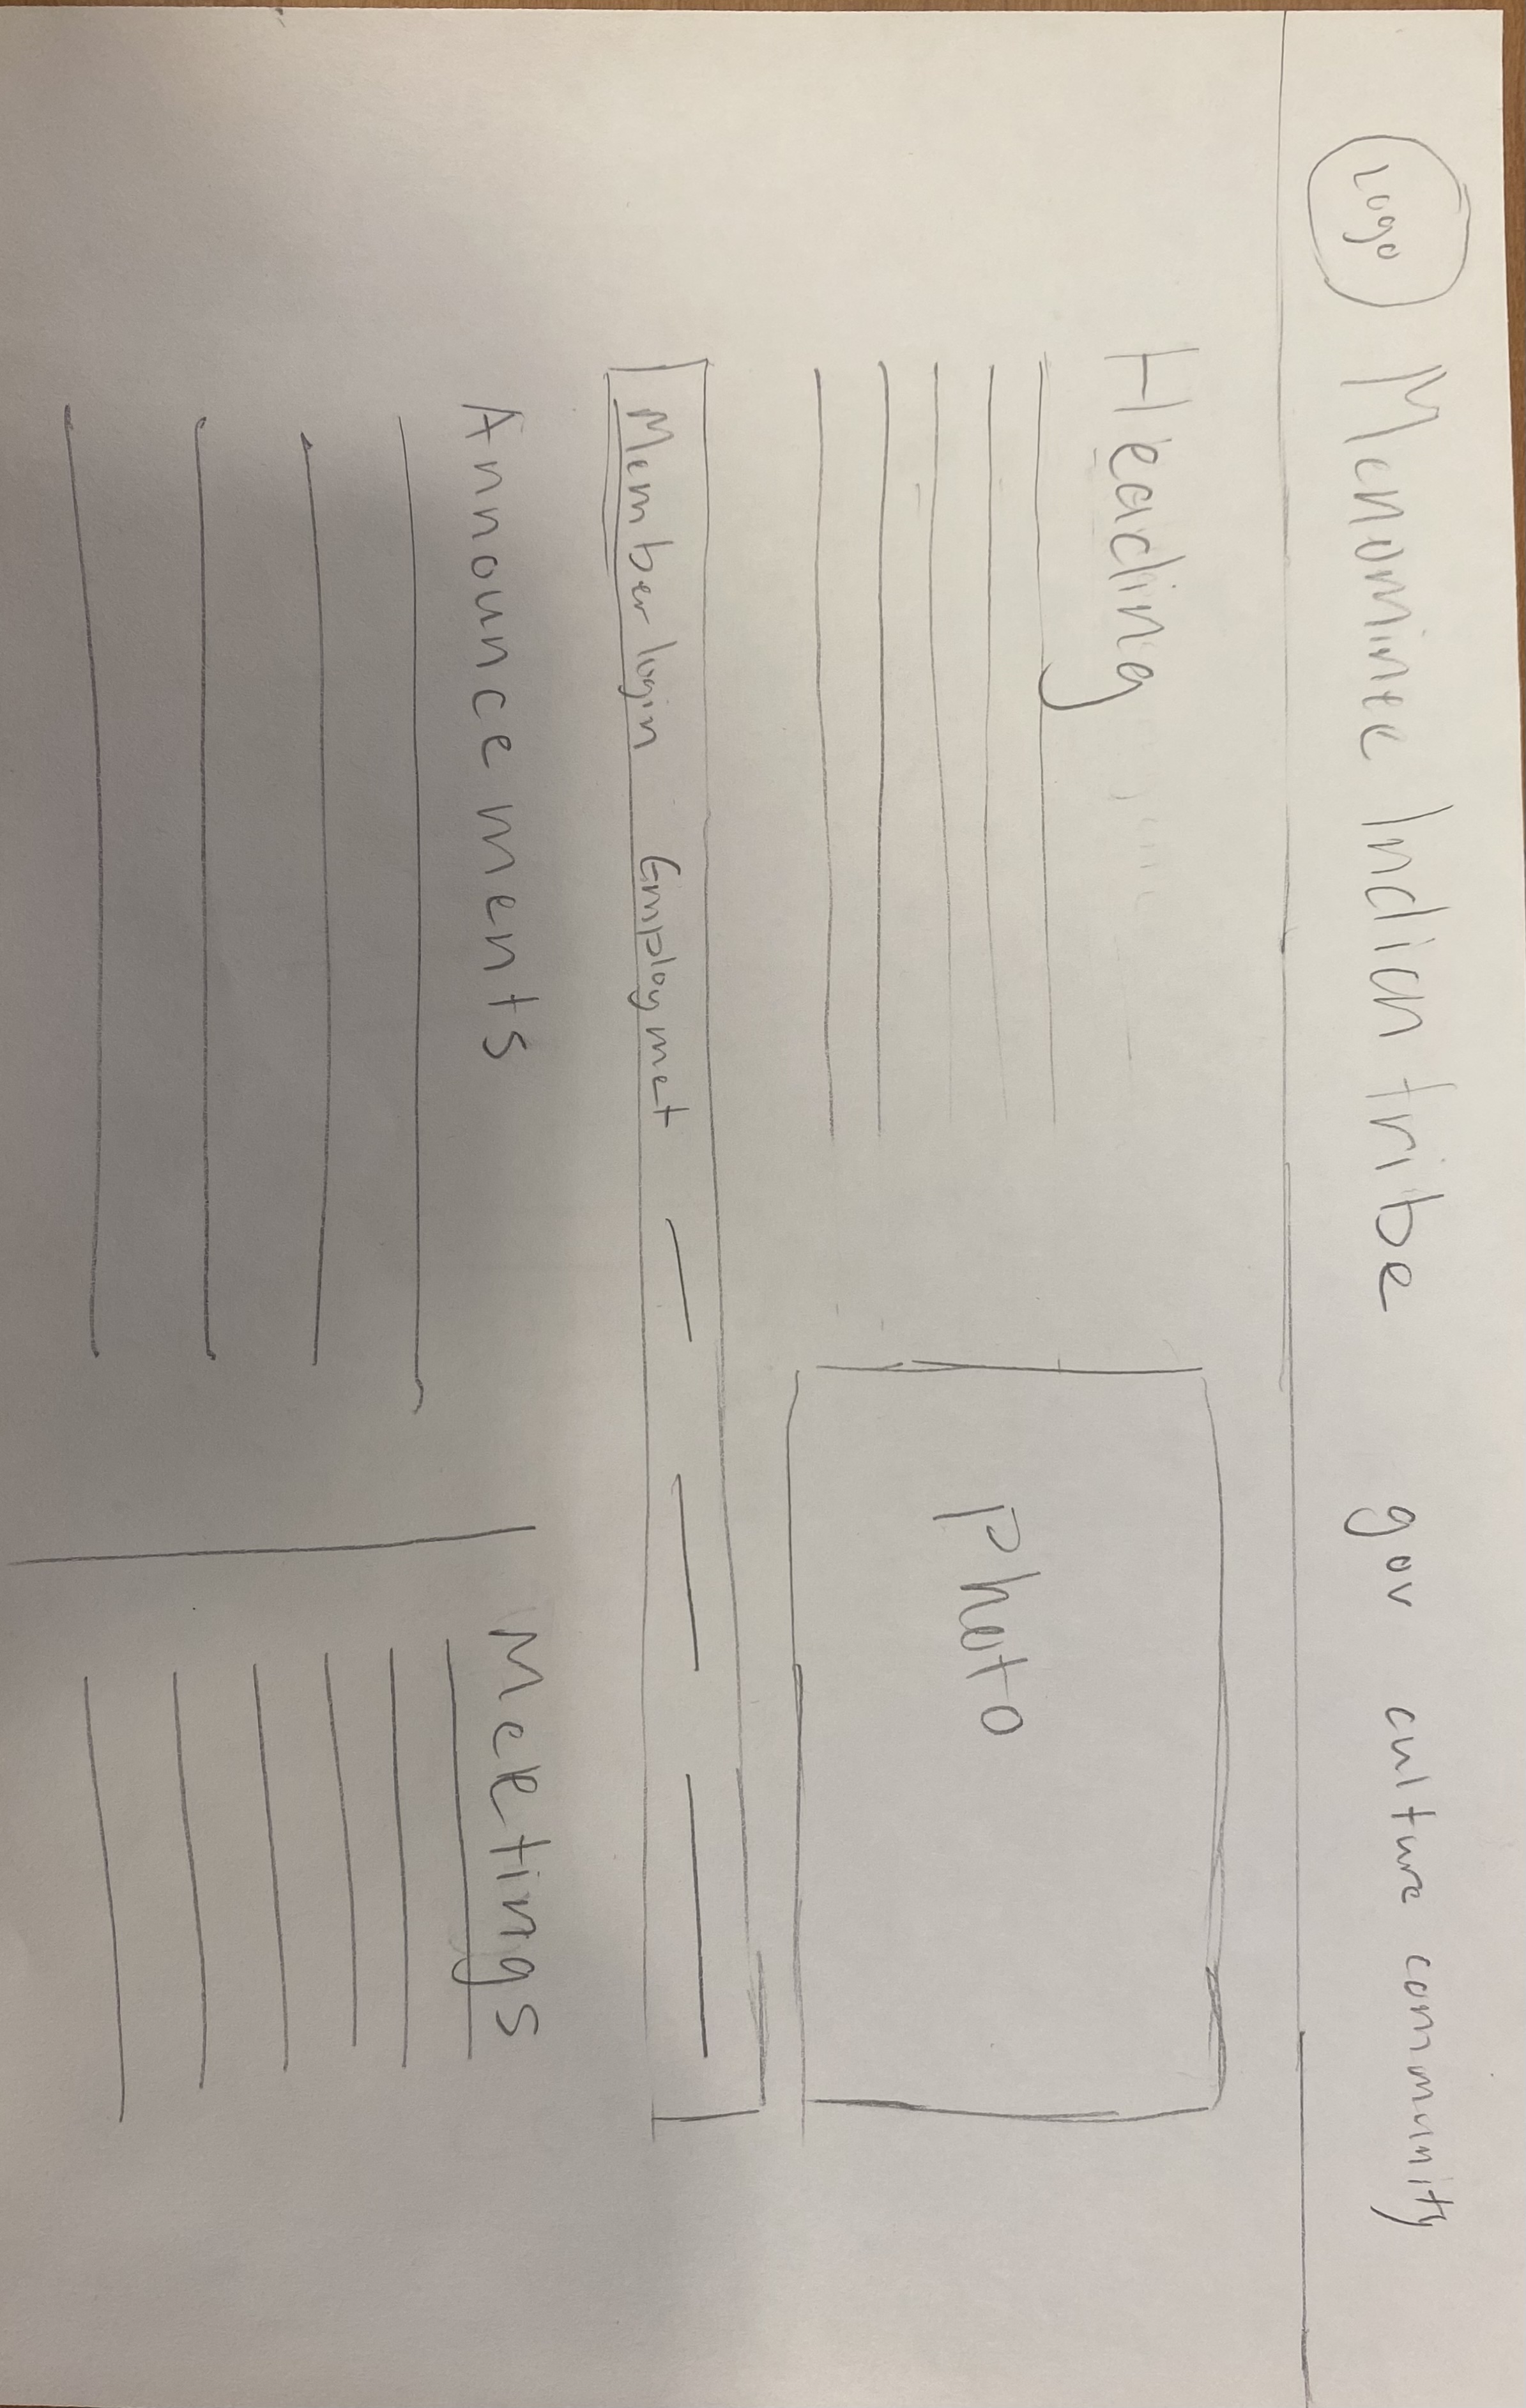 Logo Menominee Indian tribe gov culture community
Heading
Photo
Member login Employmet
Announcements
Meetings